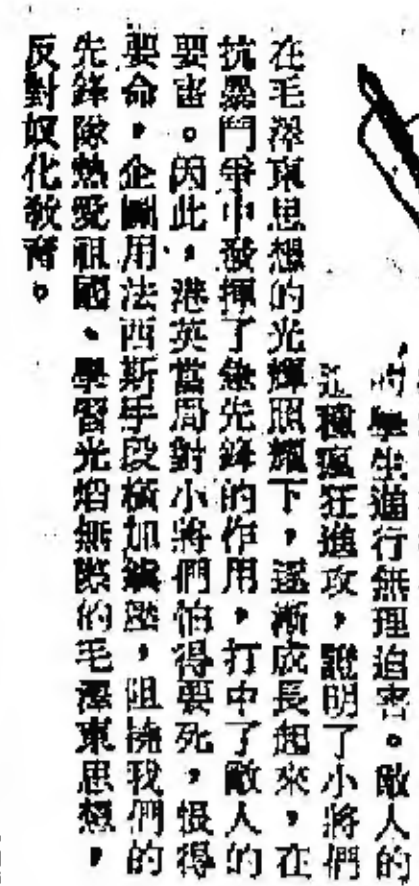 的學生進行無理迫害。敵人的
這種瘋狂進攻，證明了小將們
在毛澤東思想的光輝照耀下，逐漸成長起來，在
抗暴鬥爭中發揮了急先鋒的作用，打中了敵人的
要害。因此，港英當局對小將們怕得要死，恨得
要命，企圖用法西斯手段橫加鎮壓，阻撓我們的
先鋒隊熱愛祖國、學習光熖無際的毛澤東思想，
反對奴化敎育。